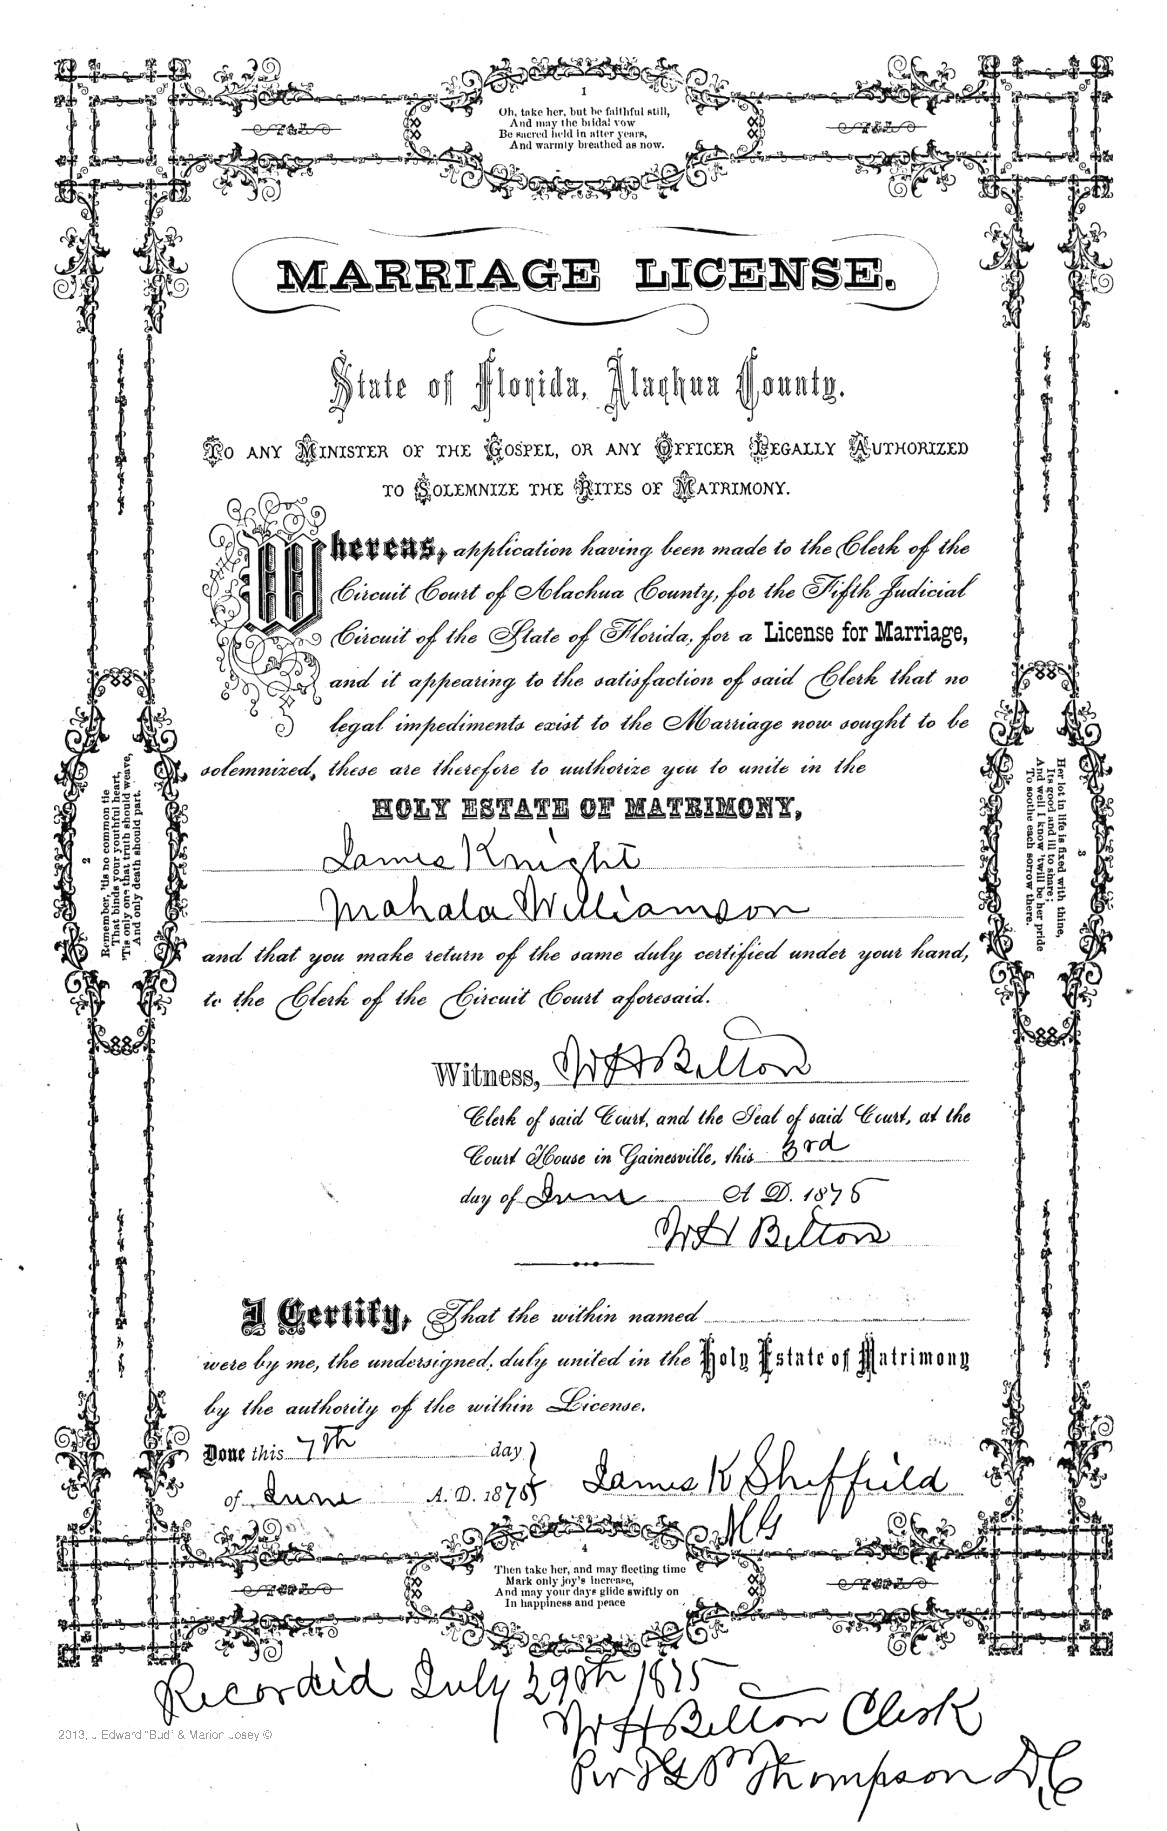 1
Oh, take her, but be faithful still,
And may the bridal vow
Be sacred held in after years,
And warmly breathed as now.
MARRIAGE LICENSE.
State of Florida, Alachua County.
TO ANY MINISTER OF THE GOSPEL, OR ANY OFFICER LEGALLY AUTHORIZED
TO SOLEMNIZE THE RITES OF MATRIMONY.
Whereas, application having been made to the Clerk of the
Circuit Court of Alachua County, for the Fifth Judicial
Circuit of the State of Florida, for a License for Marriage,
and it appearing to the satisfaction of said Clerk that no
legal impediments exist to the Marriage now sought to be
solemnized, these are therefore to authorize you to unite in the
HOLY ESTATE OF MATRIMONY,
James Knight
Mahala Williamson
and that you make return of the same duly certified under your hand,
to the Clerk of the Circuit Court aforesaid.
Witness, W H Belton
Clerk of said Court, and the Seal of said Court, at the
Court House in Gainesville, this 3rd
day of June A D. 1875
W H Belton
I Certify, That the within named
were by me, the undersigned, duly united in the Holy Estate of Matrimony
by the authority of the within License.
Done this 7th day
of June A. D. 1875
James K Sheffield
M G
2
Remember, 'tis no common tie
That binds your youthful heart,
'Tis only one that truth should weave,
And only death should part.
3
Her lot in life is fixed with thine,
Its good and ill to share;
And well I know 'twill be her pride
To soothe each sorrow there.
4
Then take her, and may fleeting time
Mark only joy's increase,
And may your days glide swiftly on
In happiness and peace
Recorded July 29th 1875
W H Belton Clerk
Per Thompson D,C
2013, J Edward "Bud" & Marion Josey ©